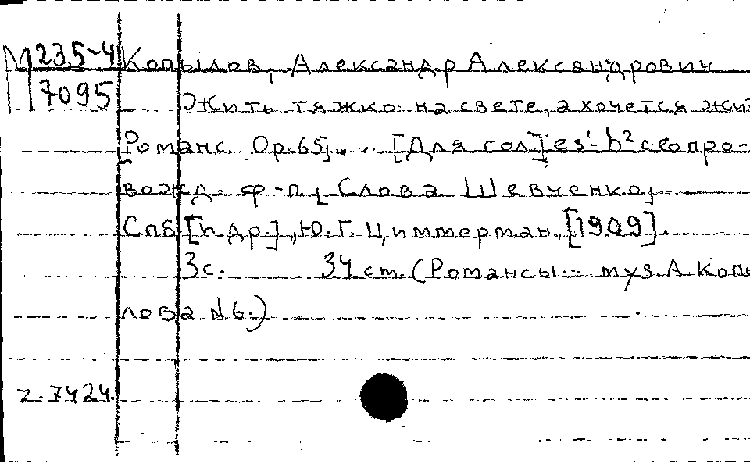 М 235-4 Копылов, Александр Александрович
7095 Жить тяжко на свете, а хочется жи
Романс. Ор. 65. .. [Для гол] es'-h² с сопро-
вожд. ф-п. [Слова Шевченко,
Спб [и др.], Ю. Г. Циммерман, [1909].
3 с. 34 см. (Романсы.. муз. А Копы
лова №6.)
z. 7424